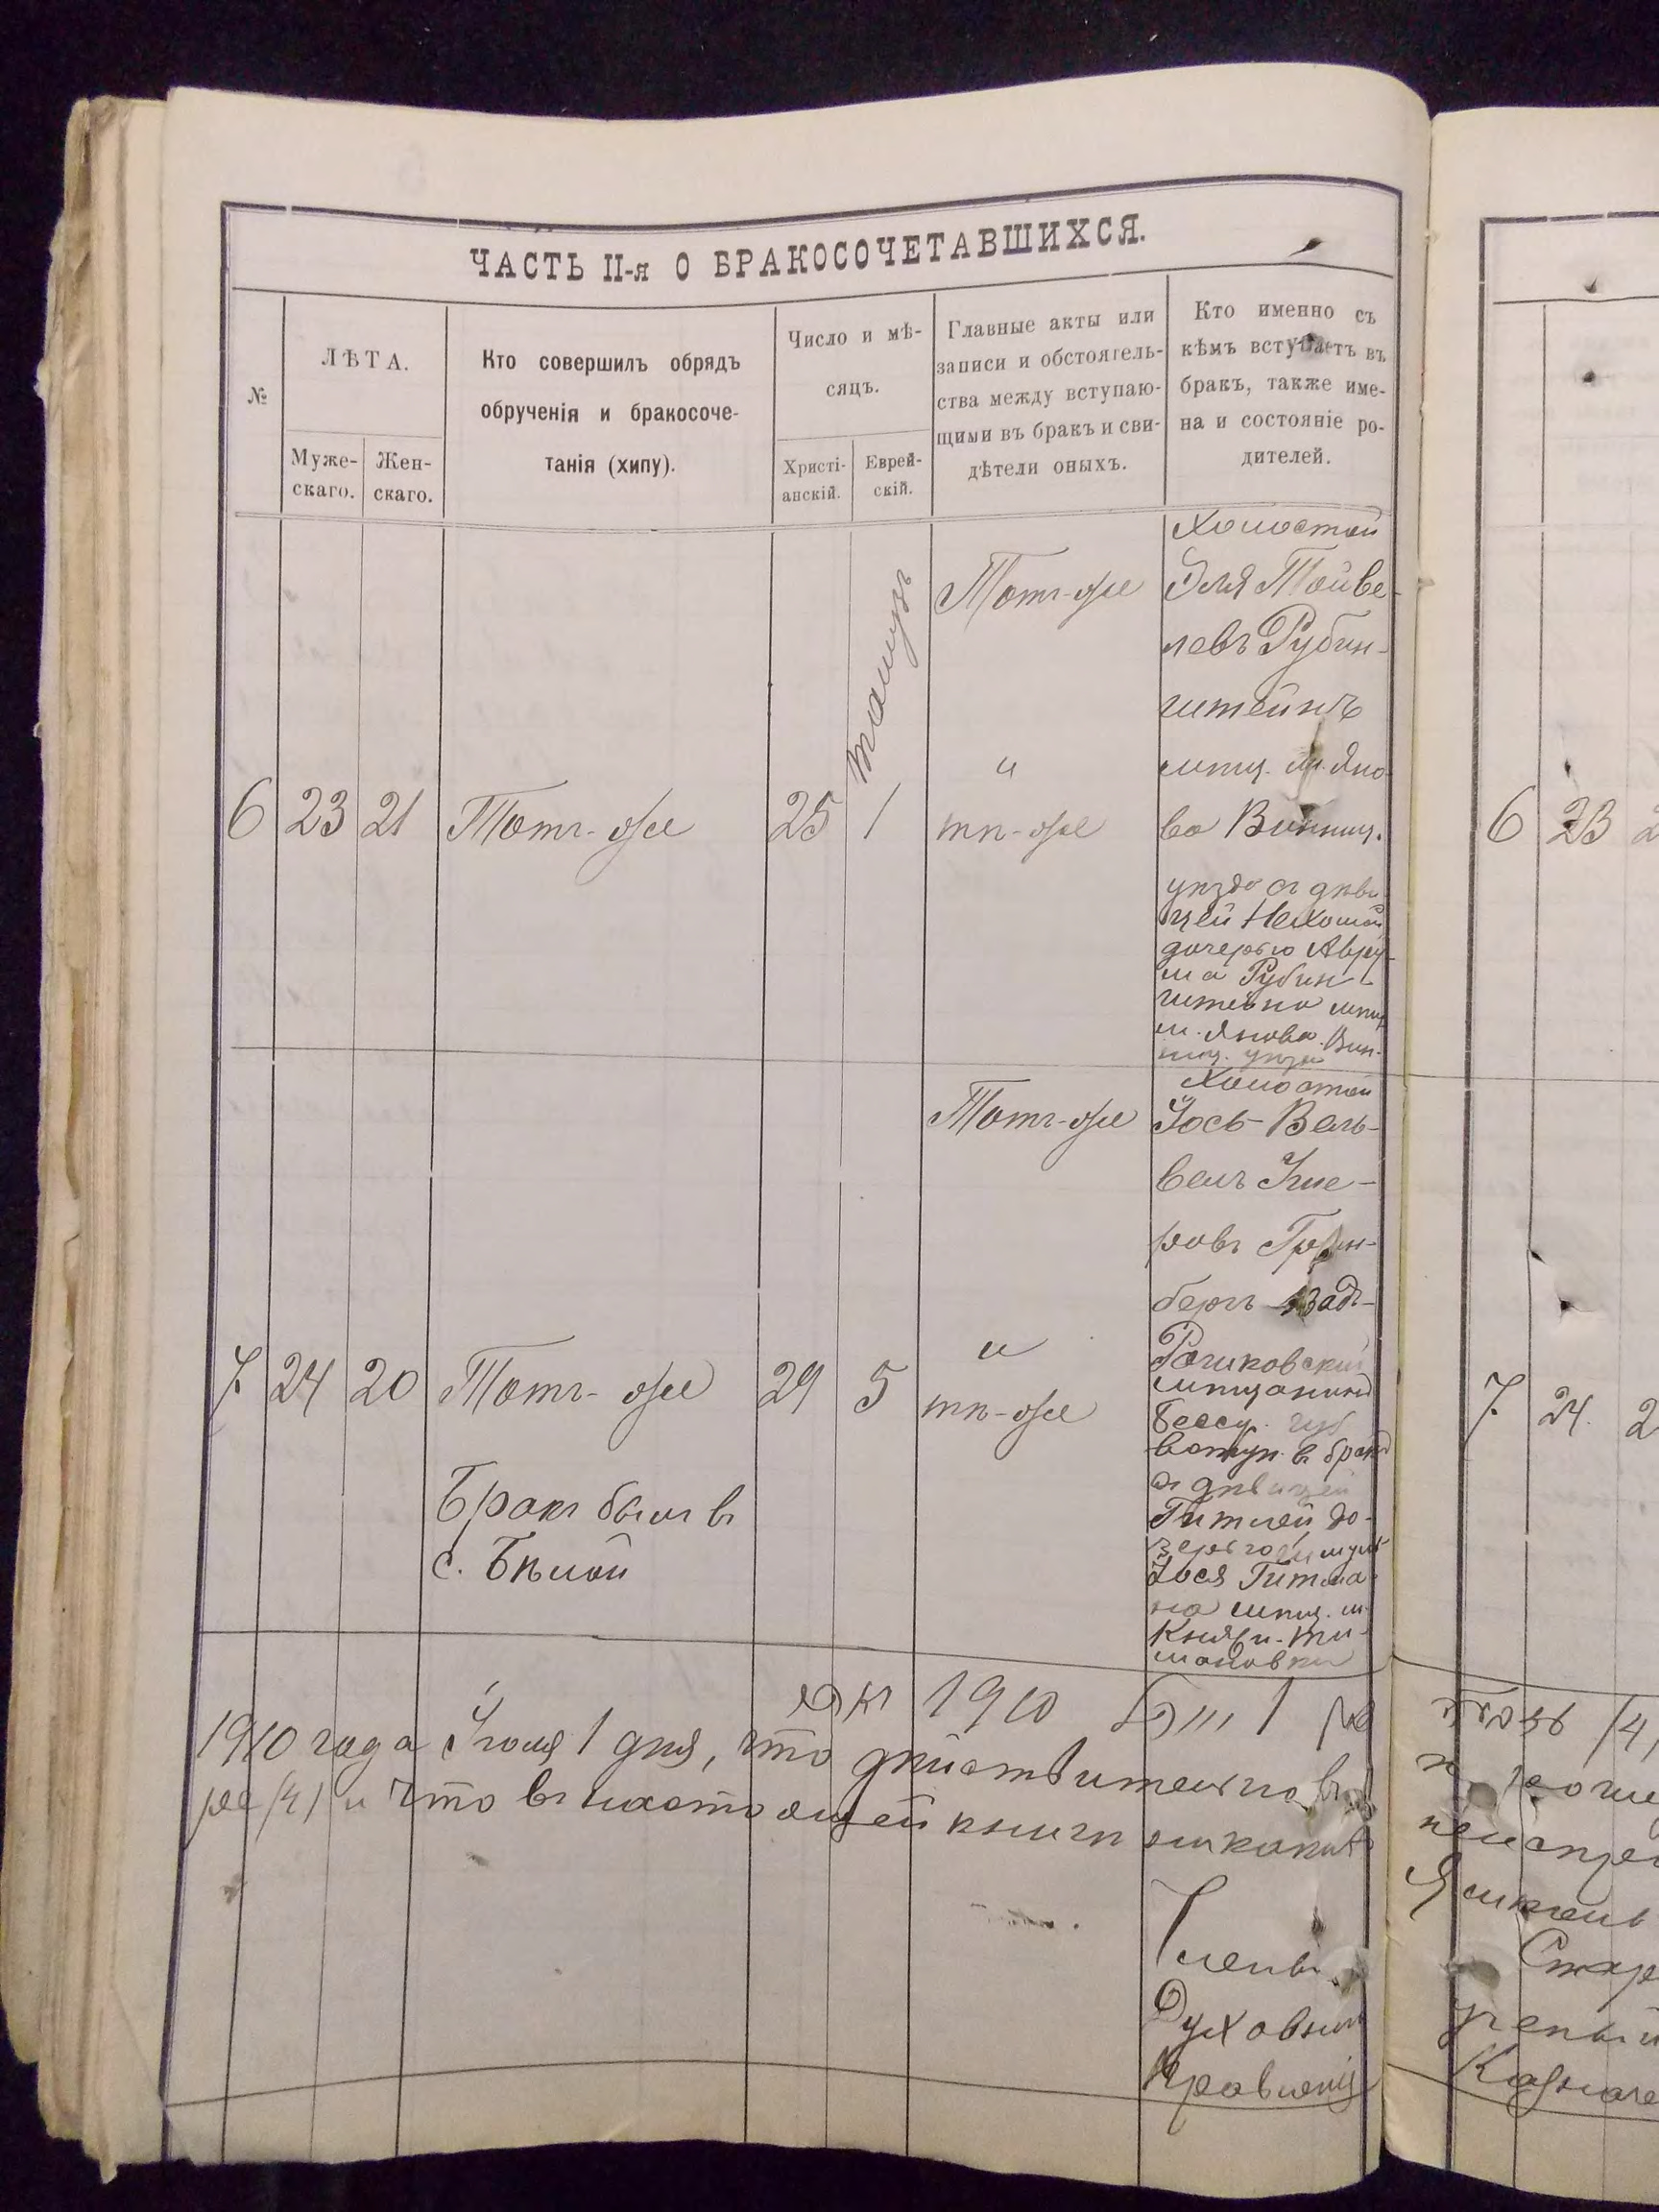 ЧАСТЬ II-я О БРАКОСОЧЕТАВШИХСЯ.
№
ЛѢТА.
Муже-
скаго.
Жен-
скаго.
Кто совершилъ обрядъ
обрученія и бракосоче-
танія (хипу).
Число и мѣ-
сяцъ.
Христі-
анскій.
Еврей-
скій.
Главные акты или
записи и обстоятель-
ства между вступаю-
щими въ бракъ и сви-
дѣтели оныхъ.
Кто именно съ
кѣмъ вступаетъ въ
бракъ, также име-
на и состояніе ро-
дителей.
6
23
21
Тотъ-же
25
1
Тамузъ
Тотъ-же
и
тѣ-же
Холостой
Эля Тойве-
левъ Рубин-
штейнъ
мѣщ. м. Яно-
ва Винниц.
уѣзда съ дѣви-
цей Нехомой
дочерью Авру-
ма Рубин-
штейна мѣщ.
м. Янова Вин-
ниц. уѣзда
7.
24
20
Тотъ-же
Бракъ былъ въ
с. Бѣлой
29
5
Тотъ-же
и
тѣ-же
Холостой
Іось-Вель-
вель
ровъ
бергъ Вад-
Рашковскій
мѣщанинъ
Бессар. губ
вступ. въ бракъ
съ дѣвицей
Гитлей до-
черью
Іося Гитма-
на мѣщ. м.
Княжи-
1910 года Іюля 1 дня, что дѣйствительно въ
ре (4) и что въ настоящей книги никакихъ
1910
Члены
Духовнаго
Правленія
6
23
2
7.
24.
2
(4)
Казначе